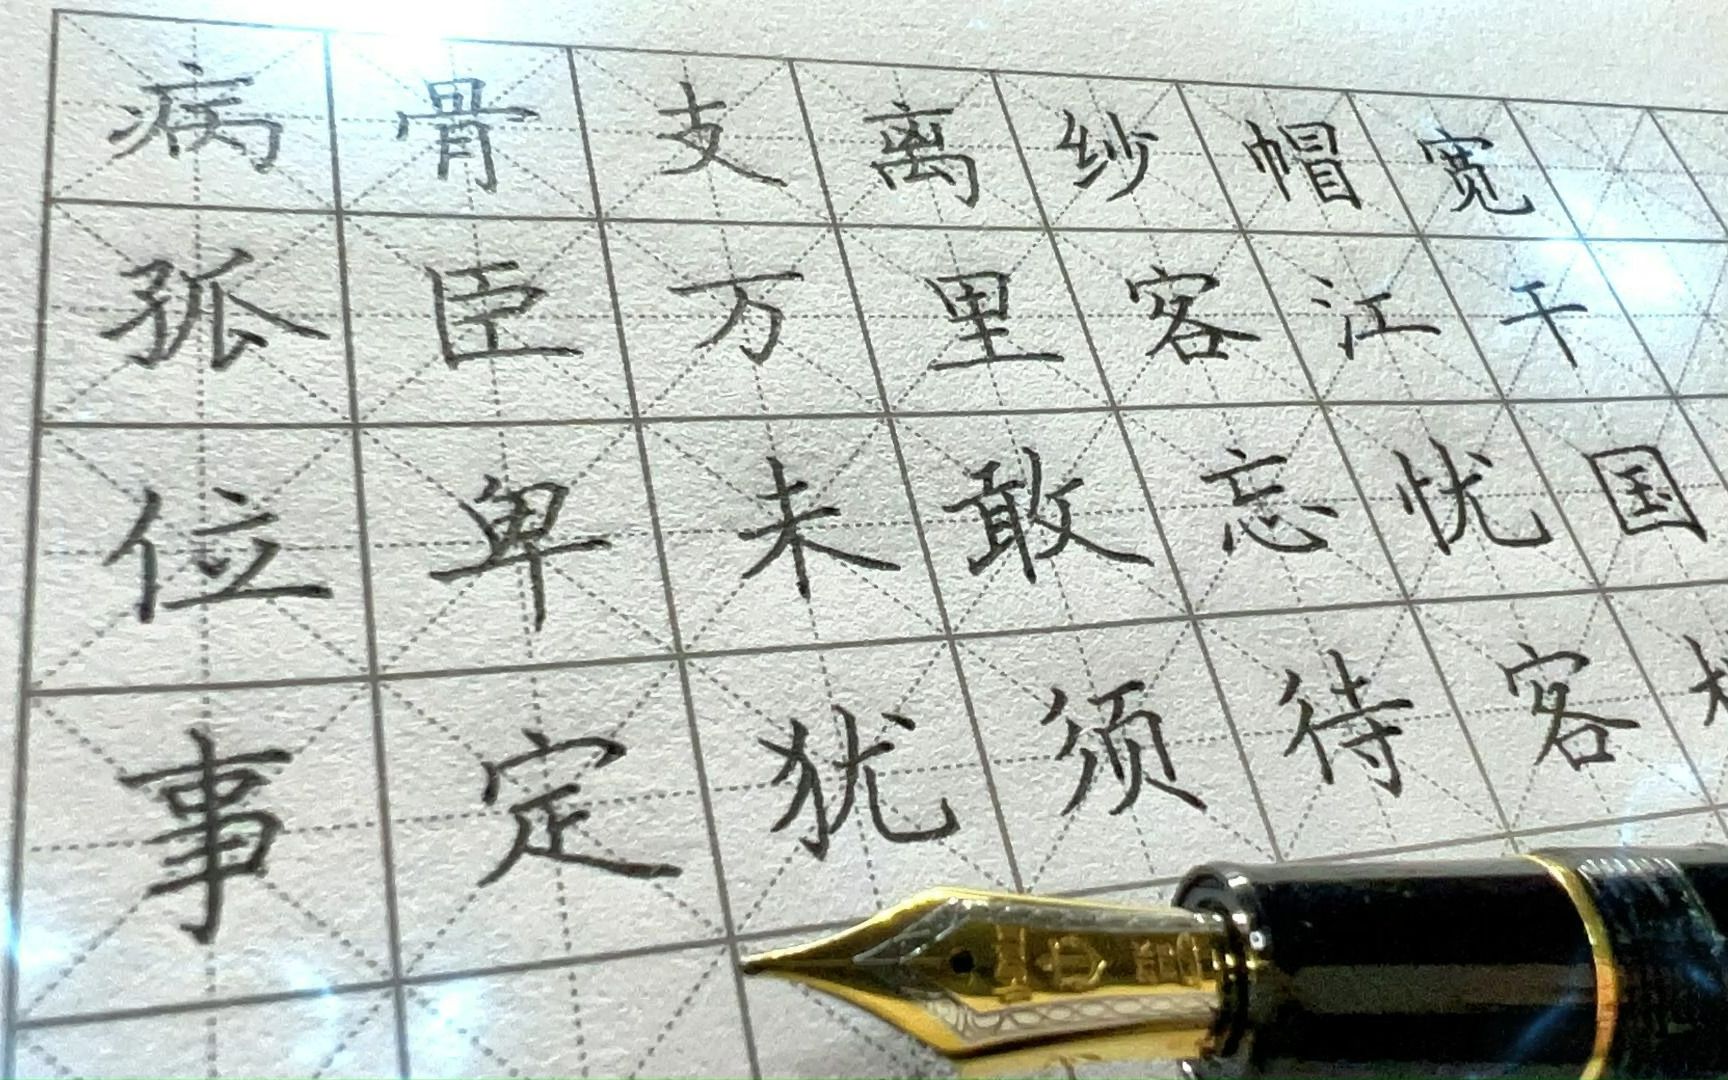 病骨支离纱帽宽
孤臣万里客江干
位卑未敢忘忧国
事定犹须待客